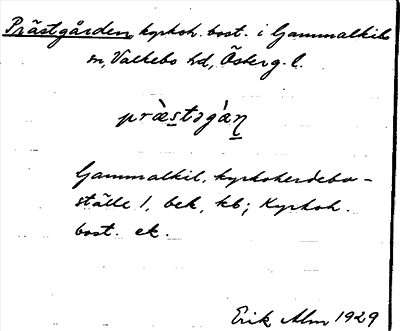 Prästgården, kyrkoh. bost. i Gammalkils
sn, Valkebo hd, Österg. l.
præ̀stɔgán̥
Gammalkil, kyrkoherdebo-
ställe 1, bek, kb; Kyrkoh.
bost. ek.
Erik Alm 1929